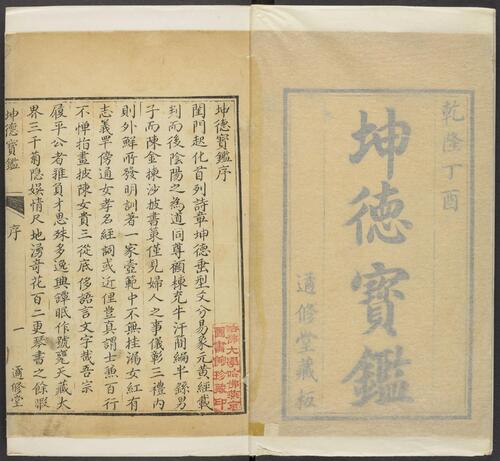 乾隆丁酉
坤德寶鑑
適修堂藏板
坤德寶鑑序
閨門起化首列詩章坤德垂型文兮易象元黃經載
判而後陰陽之為道同尊顧棟充牛汗簡編半錄男
子而陳金揀沙披書菓僅見婦人之事儀彰三禮內
則外鮮所發明訓著一家壼範中不無掛漏女紅有
志義罕傍通女孝名經詞或近俚豈真謂士無百行
不憚指畫披陳女貴三從底侈語言文字哉吾宗
履平公者雅負才思殊多逸興鐸眠作號甕天藏大
界三千菊隱娛情尺地湧奇花百二更琴書之餘暇
坤德寶鑑
序
一
適修堂